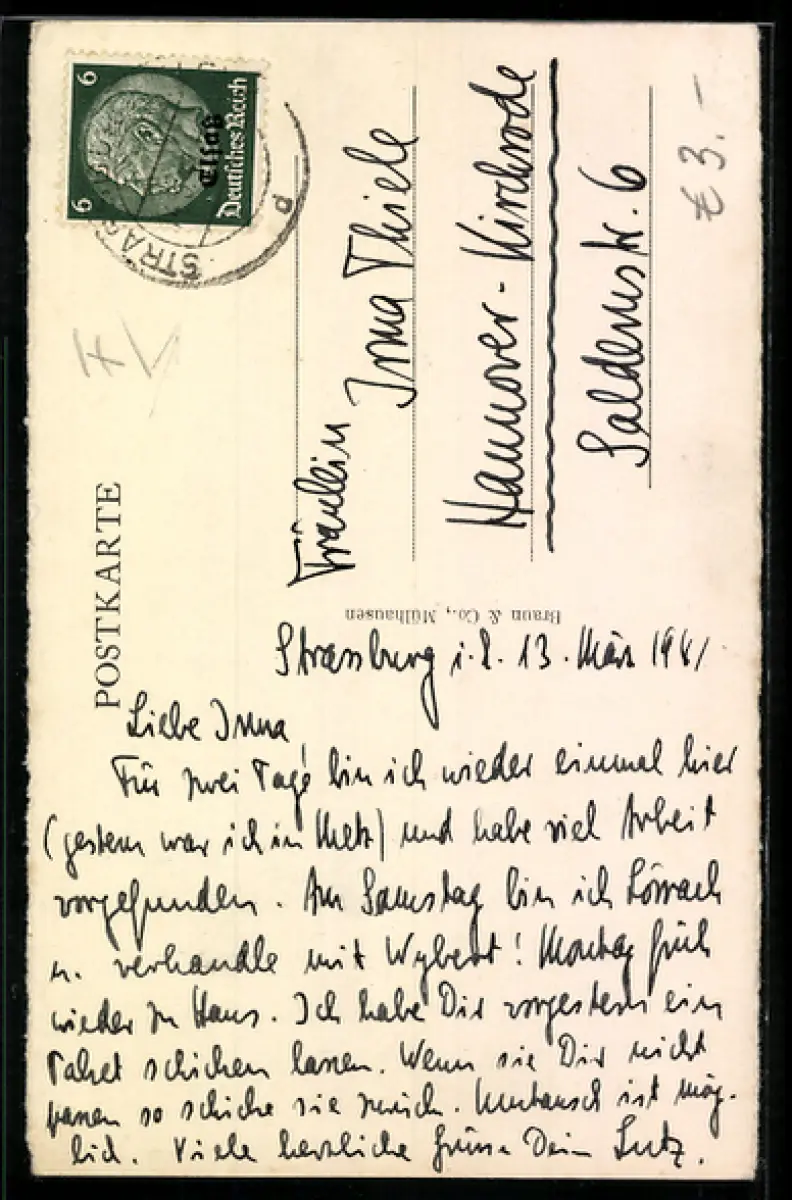 6
6
Elsaß
Deutsches Reich
STRA
d
Fräulein
Irma Thiele
Hannover-Kirchrode
Saldernstr. 6
€ 3.-
POSTKARTE
Braun & Co., Mülhausen
Strassburg i. E. 13. März 1941
Liebe Irma,
Für zwei Tage bin ich wieder einmal hier
(gestern war ich in Metz) und habe viel Arbeit
vorgefunden. Am Samstag bin ich Lörrach
u. verhandle mit Wybert! Montag früh
wieder zu Haus. Ich habe Dir vorgestern ein
Paket schicken lassen. Wenn sie Dir nicht
passen so schicke sie zurück. Umtausch ist mög-
lich. Viele herzliche Grüsse Dein Lutz.